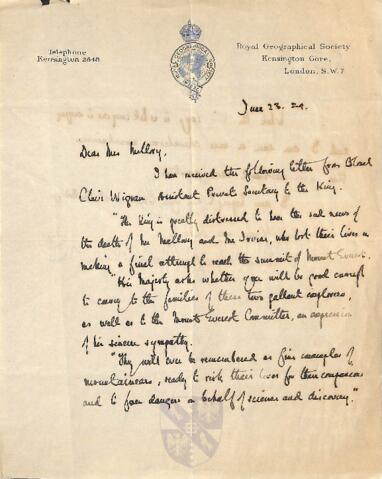 Telephone
Kensington 2648.
Royal Geographical Society
Kensington Gore,
London, S.W.7
June 23. 24.
Dear Mrs Mallory,
I have received the following letter from Colonel
Clive Wigram Assistant Private Secretary to the King.
"The King is greatly distressed to hear the sad news of
the death of Mr Mallory and Mr Irvine, who lost their lives in
making a final attempt to reach the summit of Mount Everest.
"His Majesty asks whether you will be good enough
to convey to the families of these two gallant explorers,
as well as to the Mount Everest Committee, an expression
of his sincere sympathy.
"They will ever be remembered as fine examples of
mountaineers, ready to risk their lives for their companions
and to face dangers on behalf of science and discovery."